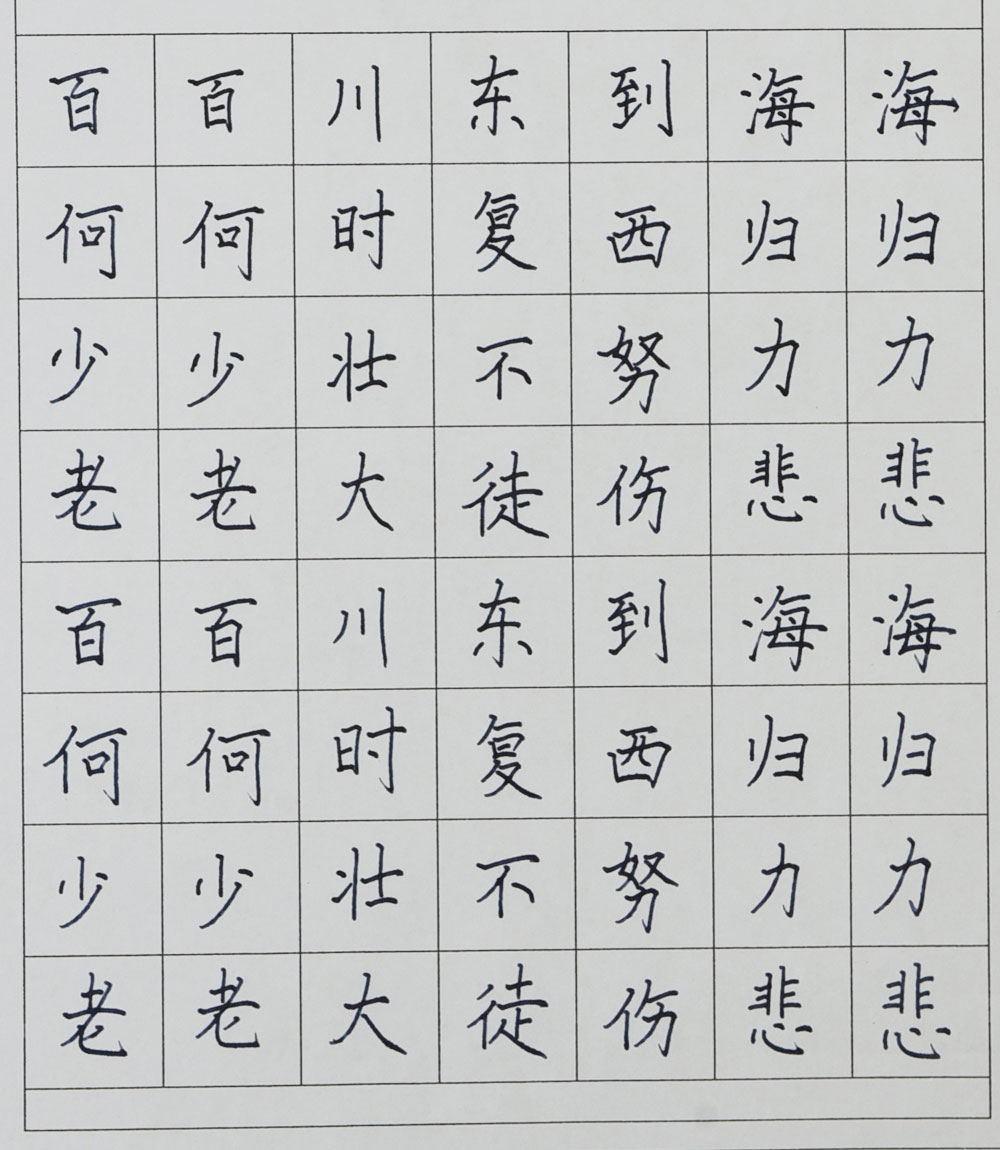 百百川东到海海
何何时复西归归
少少壮不努力力
老老大徒伤悲悲
百百川东到海海
何何时复西归归
少少壮不努力力
老老大徒伤悲悲